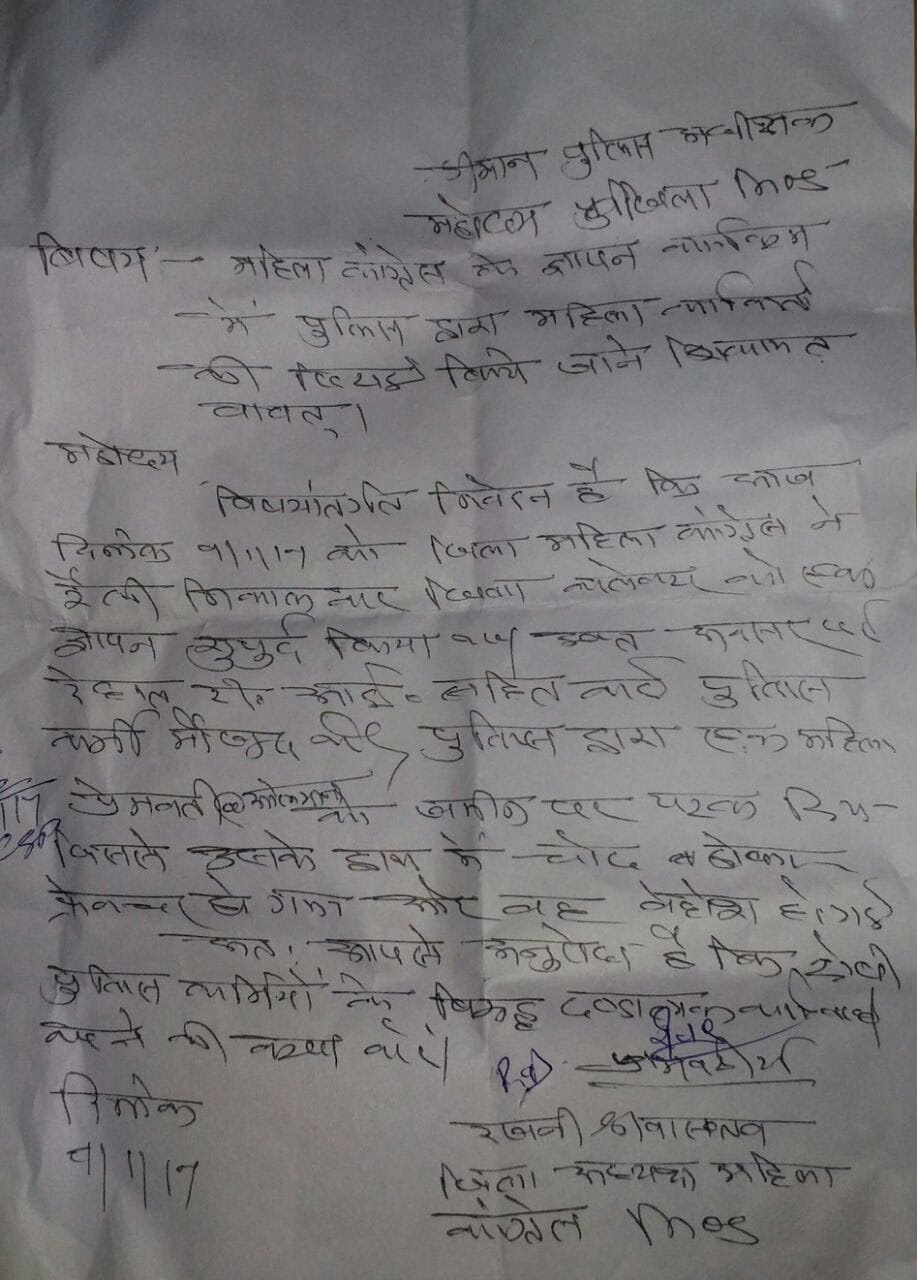 श्रीमान पुलिस अधीक्षक
महोदय जिला भिण्ड
विषय :- महिला कांग्रेस के ज्ञापन कार्यक्रम
में पुलिस द्वारा महिला
की किये जाने
वावत् ।
महोदय
विषयांतर्गत निवेदन है कि आज
दिनांक 9/1/17 को जिला महिला कांग्रेस ने
रैली निकाल कर जिला कलेक्टर को एक
ज्ञापन सुपुर्द किया उक्त अवसर पर
टी. आई. सहित कई पुलिस
कर्मी मौजूद थे पुलिस द्वारा एक महिला
प्रेमवती को जमीन पर पटक दिया
जिससे उसके हाथ में चोट व होकर
फ्रेक्चर हो गया और वह बेहोश हो गई
अतः आपसे अनुरोध है कि दोषी
पुलिस कर्मियों के विरुद्ध दण्डात्मक कार्यवाही
करने की कृपा करें।
दिनांक
9/1/17
रजनी श्रीवास्तव
जिला अध्यक्ष महिला
कांग्रेस भिण्ड